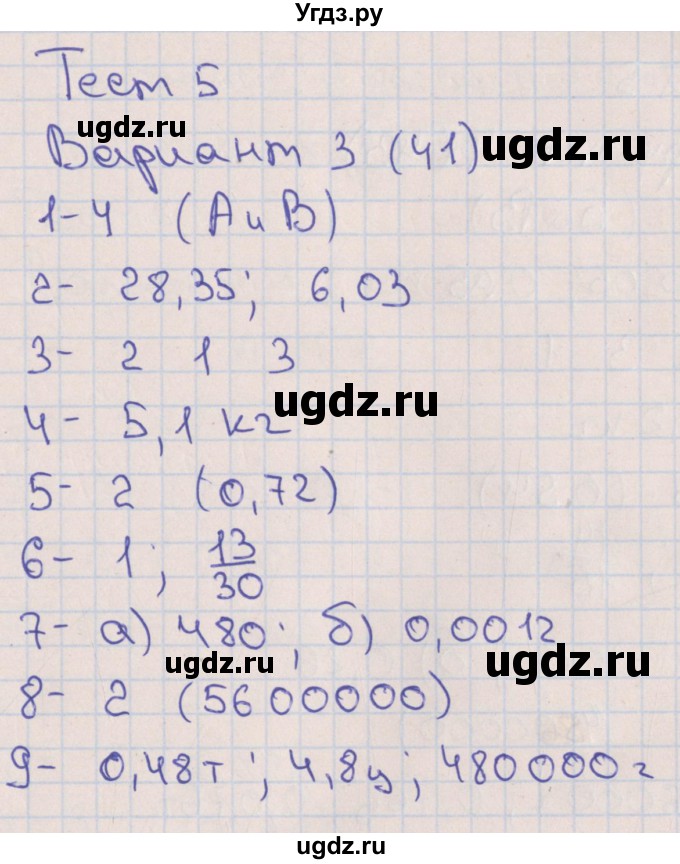 Угдз.ру
Тест 5
ugdz.ru
Вариант 3 (41)
ugdz.ru
1- 4 (А и В)
2- 28,35; 6,03
3- 2 1 3
ugdz.ru
4- 5,1 кг
5- 2 (0,72)
6- 1; 13/30
7- а) 480; б) 0,0012
ugdz.ru
ugdz.ru
8- 2 (5600000)
9- 0,48т; 4,8ц; 480000г
ugdz.ru